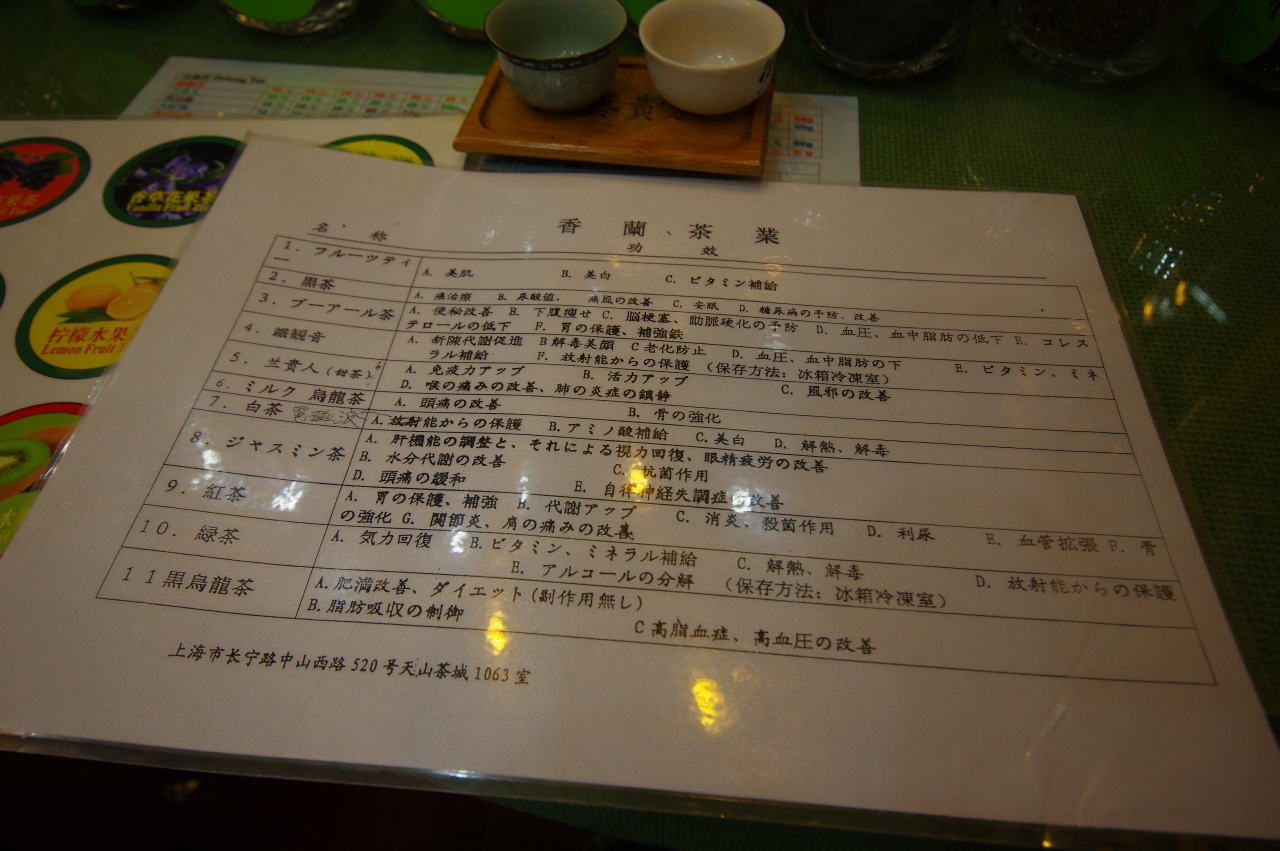 Oolong Tea
貴
果茶
香草花果茶
柠檬水果
Lemon Fruit
香蘭茶業
名称 功效
1. フルーツティー A. 美肌 B. 美白 C. ビタミン補給
2. 黒茶 A. 痛治療 B. 尿酸値、痛風の改善 C. 安眠 D. 糖尿病の予防、改善
3. プーアール茶 A. 便秘改善 B. 下腹痩せ C. 脳梗塞、動脈硬化の予防 D. 血圧、血中脂肪の低下 E. コレス
テロールの低下 F. 胃の保護、補強鉄
4. 鉄観音 A. 新陳代謝促進 B解毒美顔 C老化防止 D. 血圧、血中脂肪の下 E. ビタミン、ミネ
ラル補給 F. 放射能からの保護 (保存方法：冰箱冷凍室)
5. 兰贵人(甜茶) A. 免疫力アップ B. 活力アップ C. 風邪の改善
D. 喉の痛みの改善、肺の炎症の鎮静
6. ミルク烏龍茶 A. 頭痛の改善 B. 骨の強化
7. 白茶 A.放射能からの保護 B.アミノ酸補給 C.美白 D. 解熱、解毒
8. ジャスミン茶 A. 肝機能の調整と、それによる視力回復、眼精疲労の改善
B. 水分代謝の改善 C. 抗菌作用
D. 頭痛の緩和 E. 自律神経失調症の改善
9. 紅茶 A. 胃の保護、補強 B. 代謝アップ C. 消炎、殺菌作用 D. 利尿 E. 血管拡張 F. 骨
の強化 G. 関節炎、肩の痛みの改善
10. 緑茶 A. 気力回復 B.ビタミン、ミネラル補給 C. 解熱、解毒 D. 放射能からの保護
E. アルコールの分解 (保存方法：冰箱冷凍室)
11黒烏龍茶 A.肥満改善、ダイエット(副作用無し)
B.脂肪吸収の制御 C高脂血症、高血圧の改善
上海市长宁路中山西路520号天山茶城1063室